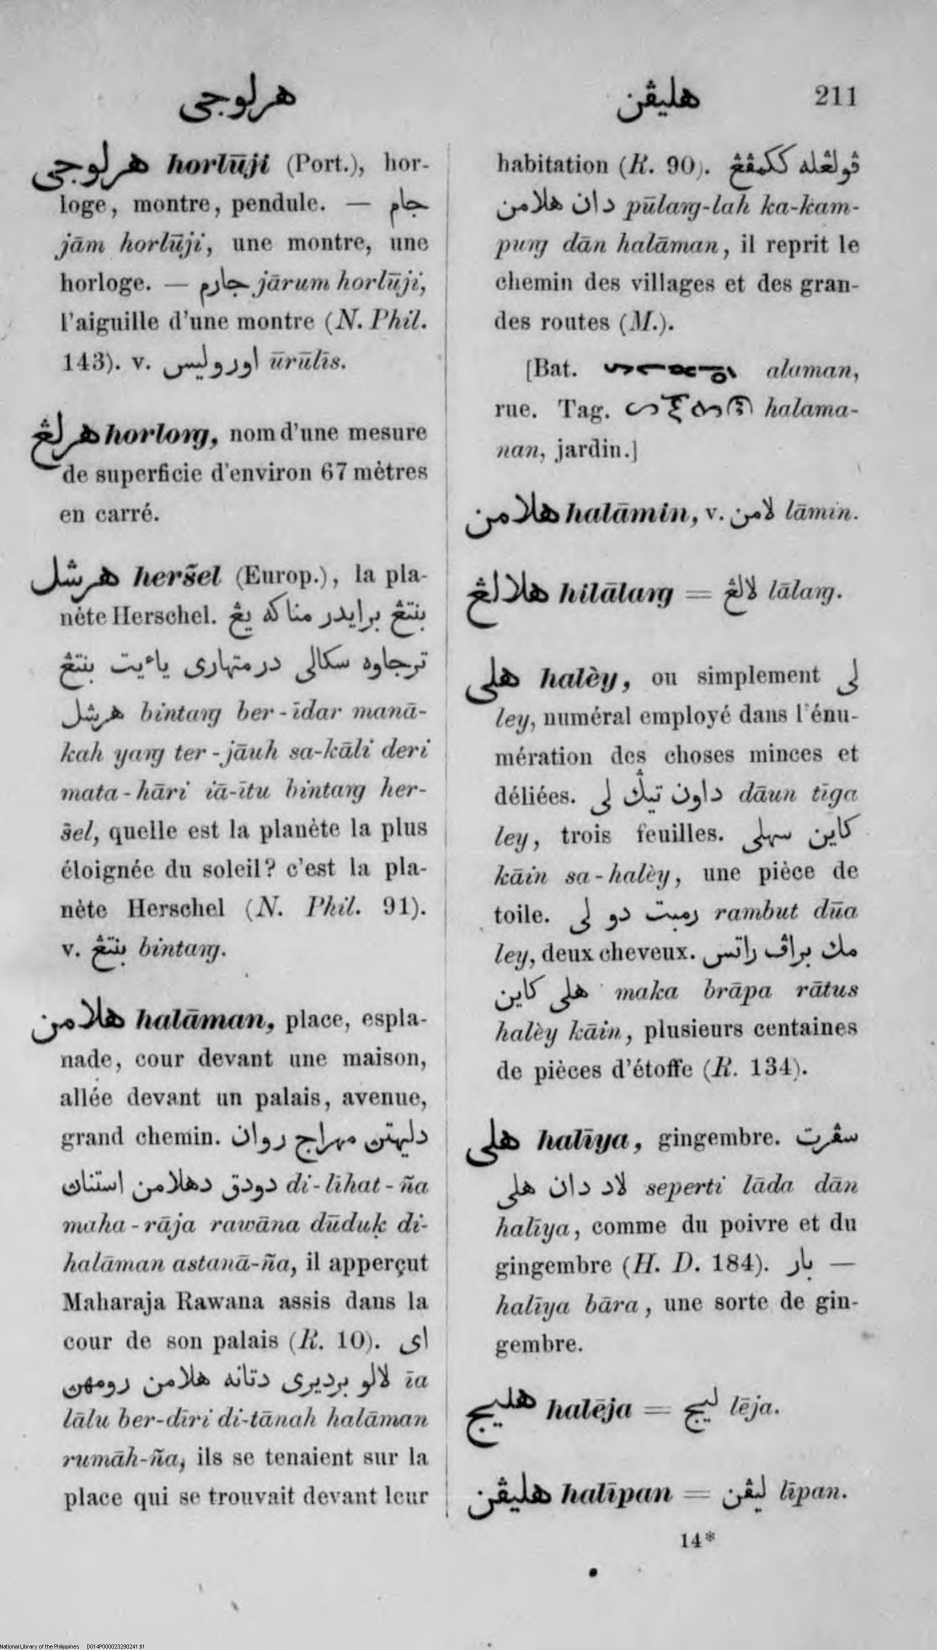 هرلوجی
هليڤن 211
هرلوجی horlūji (Port.), hor-
loge, montre, pendule. — جام
jām horlūji, une montre, une
horloge. — جارم jārum horlūji,
l'aiguille d'une montre (N. Phil.
143). v. اوروليس ūrūlīs.
هرلڠ horlong, nom d'une mesure
de superficie d'environ 67 mètres
en carré.
هرشل heršel (Europ.), la pla-
nète Herschel. بنتڠ برايدر مناكه يڠ
ترجاوه سكالی درمتهاری ياءيت بنتڠ
هرشل bintang ber-īdar manā-
kah yang ter-jāuh sa-kāli deri
mata-hāri iā-ītu bintang her-
šel, quelle est la planète la plus
éloignée du soleil? c'est la pla-
nète Herschel (N. Phil. 91).
v. بنتڠ bintang.
هلامن halāman, place, espla-
nade, cour devant une maison,
allée devant un palais, avenue,
grand chemin. دليهتن مهراج روان
دودق دهلامن استنان di-līhat-ña
maha-rāja rawāna dūduḳ di-
halāman astanā-ña, il apperçut
Maharaja Rawana assis dans la
cour de son palais (R. 10). ای
لالو برديری دتانه هلامن رومهن īa
lālu ber-dīri di-tānah halāman
rumāh-ña, ils se tenaient sur la
place qui se trouvait devant leur
habitation (R. 90). ڤولڠله ككمڤڠ
دان هلامن pūlang-lah ka-kam-
pung dān halāman, il reprit le
chemin des villages et des gran-
des routes (M.).
[Bat. alaman,
rue. Tag. halama-
nan, jardin.]
هلامن halāmin, v. لامن lāmin.
هلالڠ hilālang = لالڠ lālang.
هلی halèy, ou simplement لی
ley, numéral employé dans l'énu-
mération des choses minces et
déliées. داون تيݢ لی dāun tīga
ley, trois feuilles. كاين سهلی
kāin sa-halèy, une pièce de
toile. رمبت دو لی rambut dūa
ley, deux cheveux. مك براڤ راتس
هلی كاين maka brāpa rātus
halèy kāin, plusieurs centaines
de pièces d'étoffe (R. 134).
هلی halīya, gingembre. سڤرت
لاد دان هلی seperti lāda dān
halīya, comme du poivre et du
gingembre (H. D. 184). بار —
halīya bāra, une sorte de gin-
gembre.
هليج halēja = ليج lēja.
هليڤن halīpan = ليڤن līpan.
14*
National Library of the Philippines